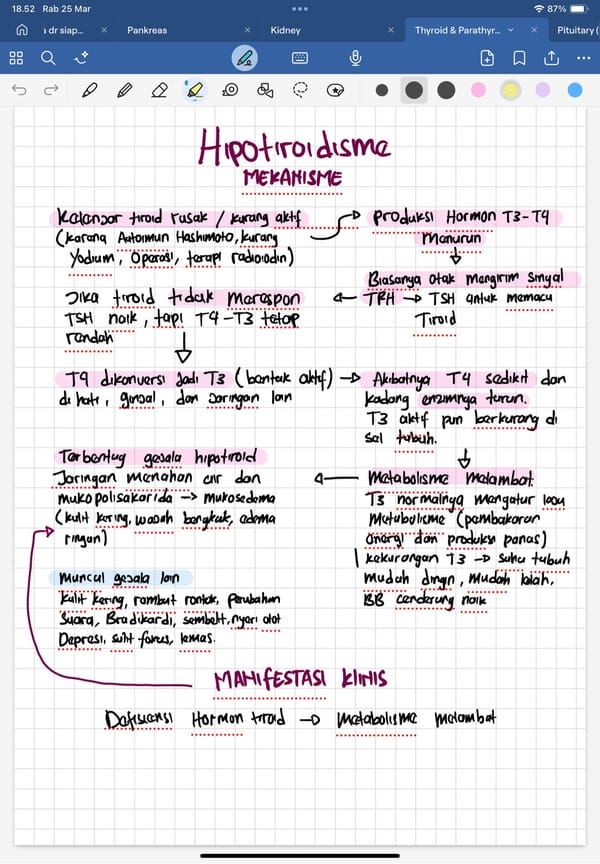 18.52 Rab 25 Mar
87%
ı dr siap...
Pankreas
Kidney
Thyroid & Parathyr...
Pituitary (
Hipotiroidisme
MEKANISME
Kelenjar tiroid rusak / kurang aktif
(karena Autoimun Hashimoto, kurang
Yodium, Operasi, terapi radioiodin)
Produksi Hormon T3-T4
Menurun
Biasanya otak mengirim sinyal
TRH → TSH untuk memacu
Tiroid
Jika tiroid tidak merespon
TSH naik, tapi T4-T3 tetap
rendah
T4 dikonversi Jadi T3 (bentuk aktif) →
di hati, ginjal, dan Jaringan lain
Akibatnya T4 sedikit dan
kadang enzimnya turun.
T3 aktif pun berkurang di
sel tubuh.
Metabolisme Melambat
T3 normalnya mengatur laju
Metabolisme (pembakaran
energi dan produksi panas)
kekurangan T3 → suhu tubuh
mudah dingin, mudah lelah,
BB cenderung naik
Terbentug gejala hipotiroid
Jaringan menahan air dan
mukopolisakarida → mukosedema
(kulit kering, wajah bengkak, edema
ringan)
Muncul gejala lain
kulit kering, rambut rontok, perubahan
Suara, Bradikardi, sembelit, nyeri otot
Depresi, sulit fokus, lemas.
MANIFESTASI KlINIS
Defisiensi Hormon tiroid → Metabolisme melambat